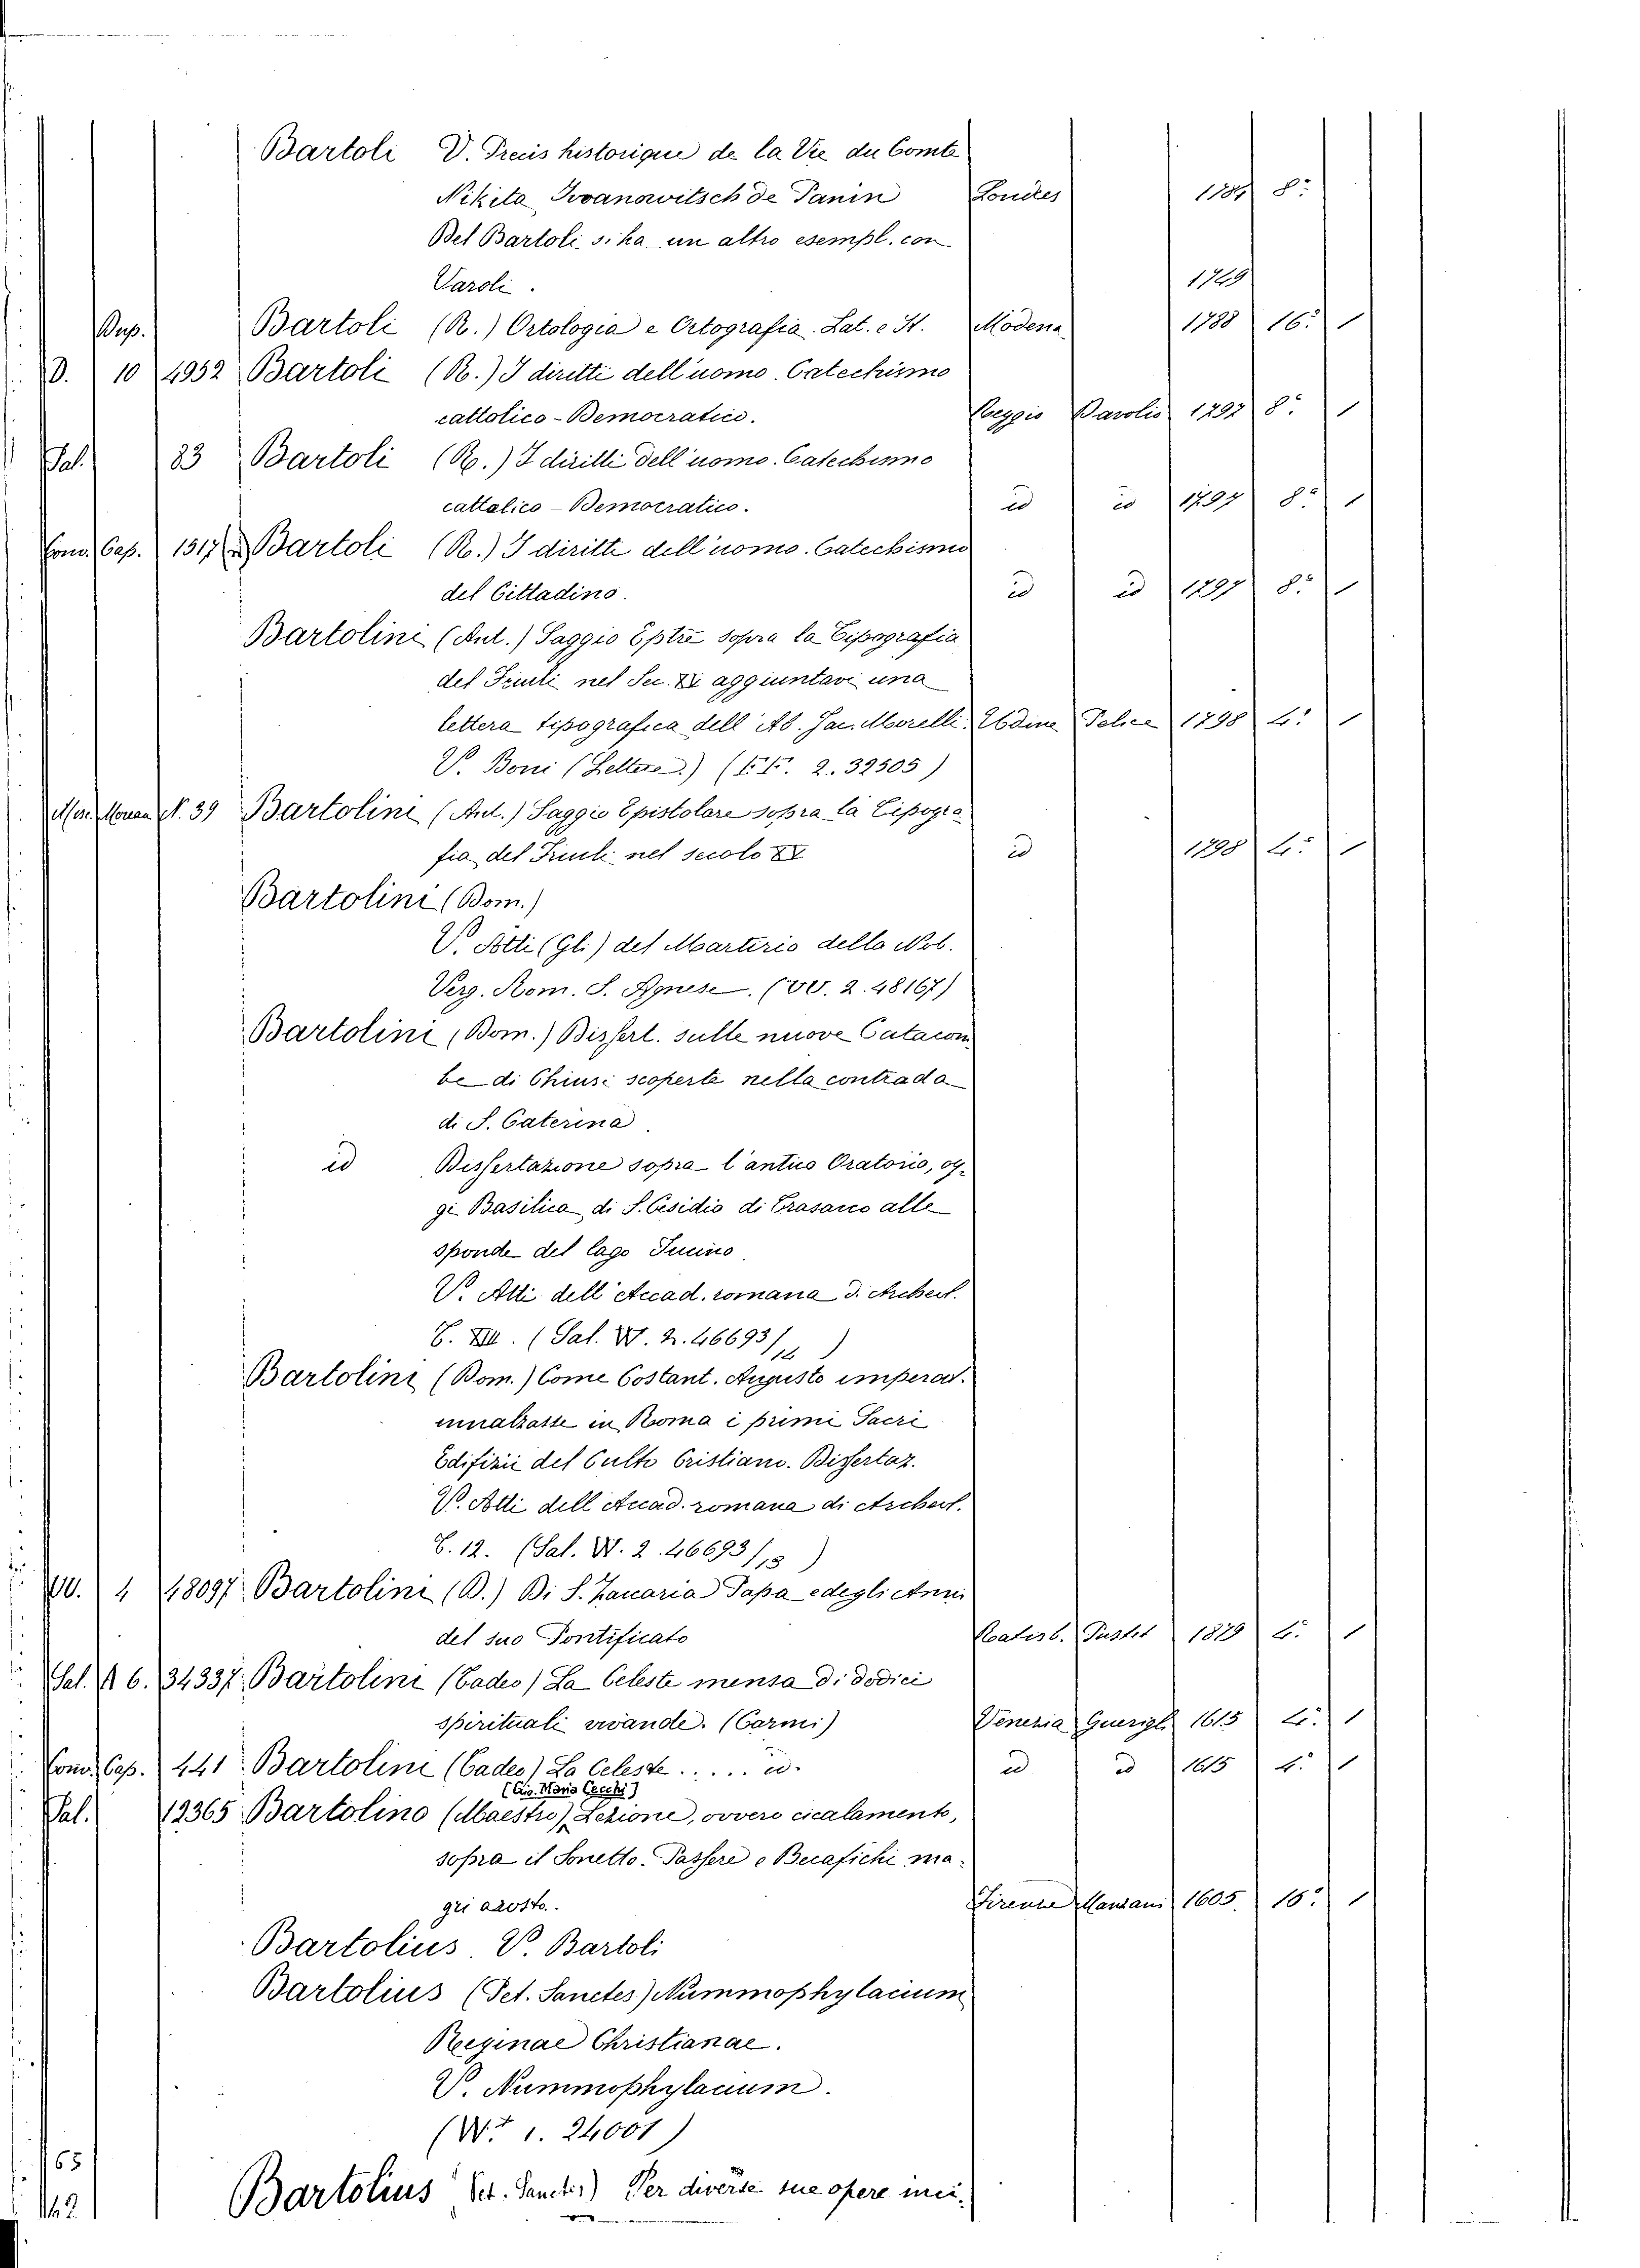 Bartoli V. Precis historique de la Vie du Comte
Nikita Ivanowitsch de Panin Londres 8:
Del Bartoli si ha un altro esempl. con
Varoli. 1749
Dup. Bartoli (R.) Ortologia e Ortografia. Lat. e It. Modena 1788 16: 1
D. 10 4952 Bartoli (R.) I diritti dell'uomo. Catechismo
cattolico-Democratico. Reggio Davolio 1797 8: 1
Pal. 83 Bartoli (R.) I diritti dell'uomo. Catechismo
cattolico-Democratico. id id 1797 8: 1
Com. Cap. 1517 Bartoli (R.) I diritti dell'uomo. Catechismo
del Cittadino. id id 1797 8: 1
Bartolini (Ant.) Saggio Eptre sopra la Tipografia
del Friuli nel Sec. XV aggiuntavi una
lettera tipografica dell'Ab. Jac. Morelli. Udine Pelice 1798 4: 1
V. Boni (Lettere) (FF. 2. 32505)
Mss. Monan N. 39 Bartolini (Ant.) Saggio Epistolare sopra la Tipogra
fia del Friuli nel secolo XV id 1798 4: 1
Bartolini (Dom.)
V. Atti (Gli) del Martirio della Nob.
Verg. Rom. S. Agnese. (VV. 2. 48167)
Bartolini (Dom.) Dissert. sulle nuove Catacom
be di Chiusi scoperte nella contrada
di S. Caterina.
id Dissertazione sopra l'antico Oratorio, og-
gi Basilica di S. Cesidio di Trasacco alle
sponde del lago Fucino
V. Atti dell'Accad. romana di Archeol.
T. XIII. (Sal. W. 2. 46693/14)
Bartolini (Dom.) Come Costant. Augusto imperat.
innalzasse in Roma i primi Sacri
Edifizii del Culto Cristiano. Dissertaz.
V. Atti dell'Accad. romana di Archeol.
T. 12. (Sal. W. 2. 46693/13)
VV. 4 48097 Bartolini (D.) Di S. Zaccaria Papa e degli Anni
del suo Pontificato Ratisb. Pustet 1879 4: 1
Sal. A 6. 34337 Bartolini (Tadeo) La Celeste mensa di dodici
spirituali vivande. (Carmi) Venezia Guerigl. 1615 4: 1
Com. Cap. 441 Bartolini (Tadeo) La Celeste..... id. id id 1615 4: 1
(Gio. Maria Cecchi)
Pal. 12365 Bartolino (Maestro) Lezione, ovvero cicalamento,
sopra il Sonetto. Passere e Beccafichi ma-
gri arosto. Firenze Manzani 1605. 16: 1
Bartolius V. Bartoli
Bartolius (Pet. Sanctes) Nummophylacium
Reginae Christianae.
V. Nummophylacium.
(W. 1. 24001)
65
Bartolius (Pet. Sanctes) Per diverse sue opere inci-